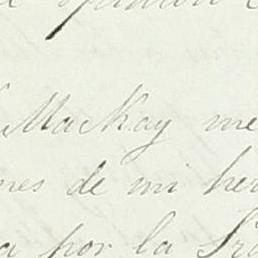 opinion
MacKay me
nes de mi her
a por la Fra